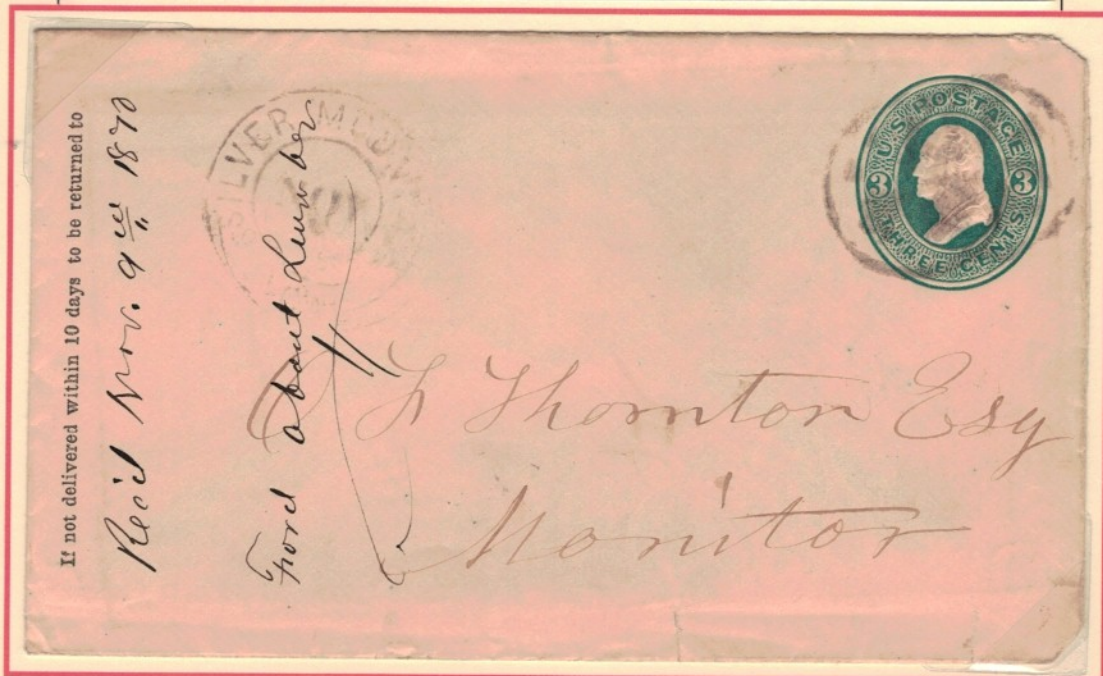 If not delivered within 10 days to be returned to
Rec'd Nov. 9th 1870
Ford about Lumber
SILVER MOUN
U.S. POSTAGE
3 3
THREE CENTS
Thornton Esq
Monitor